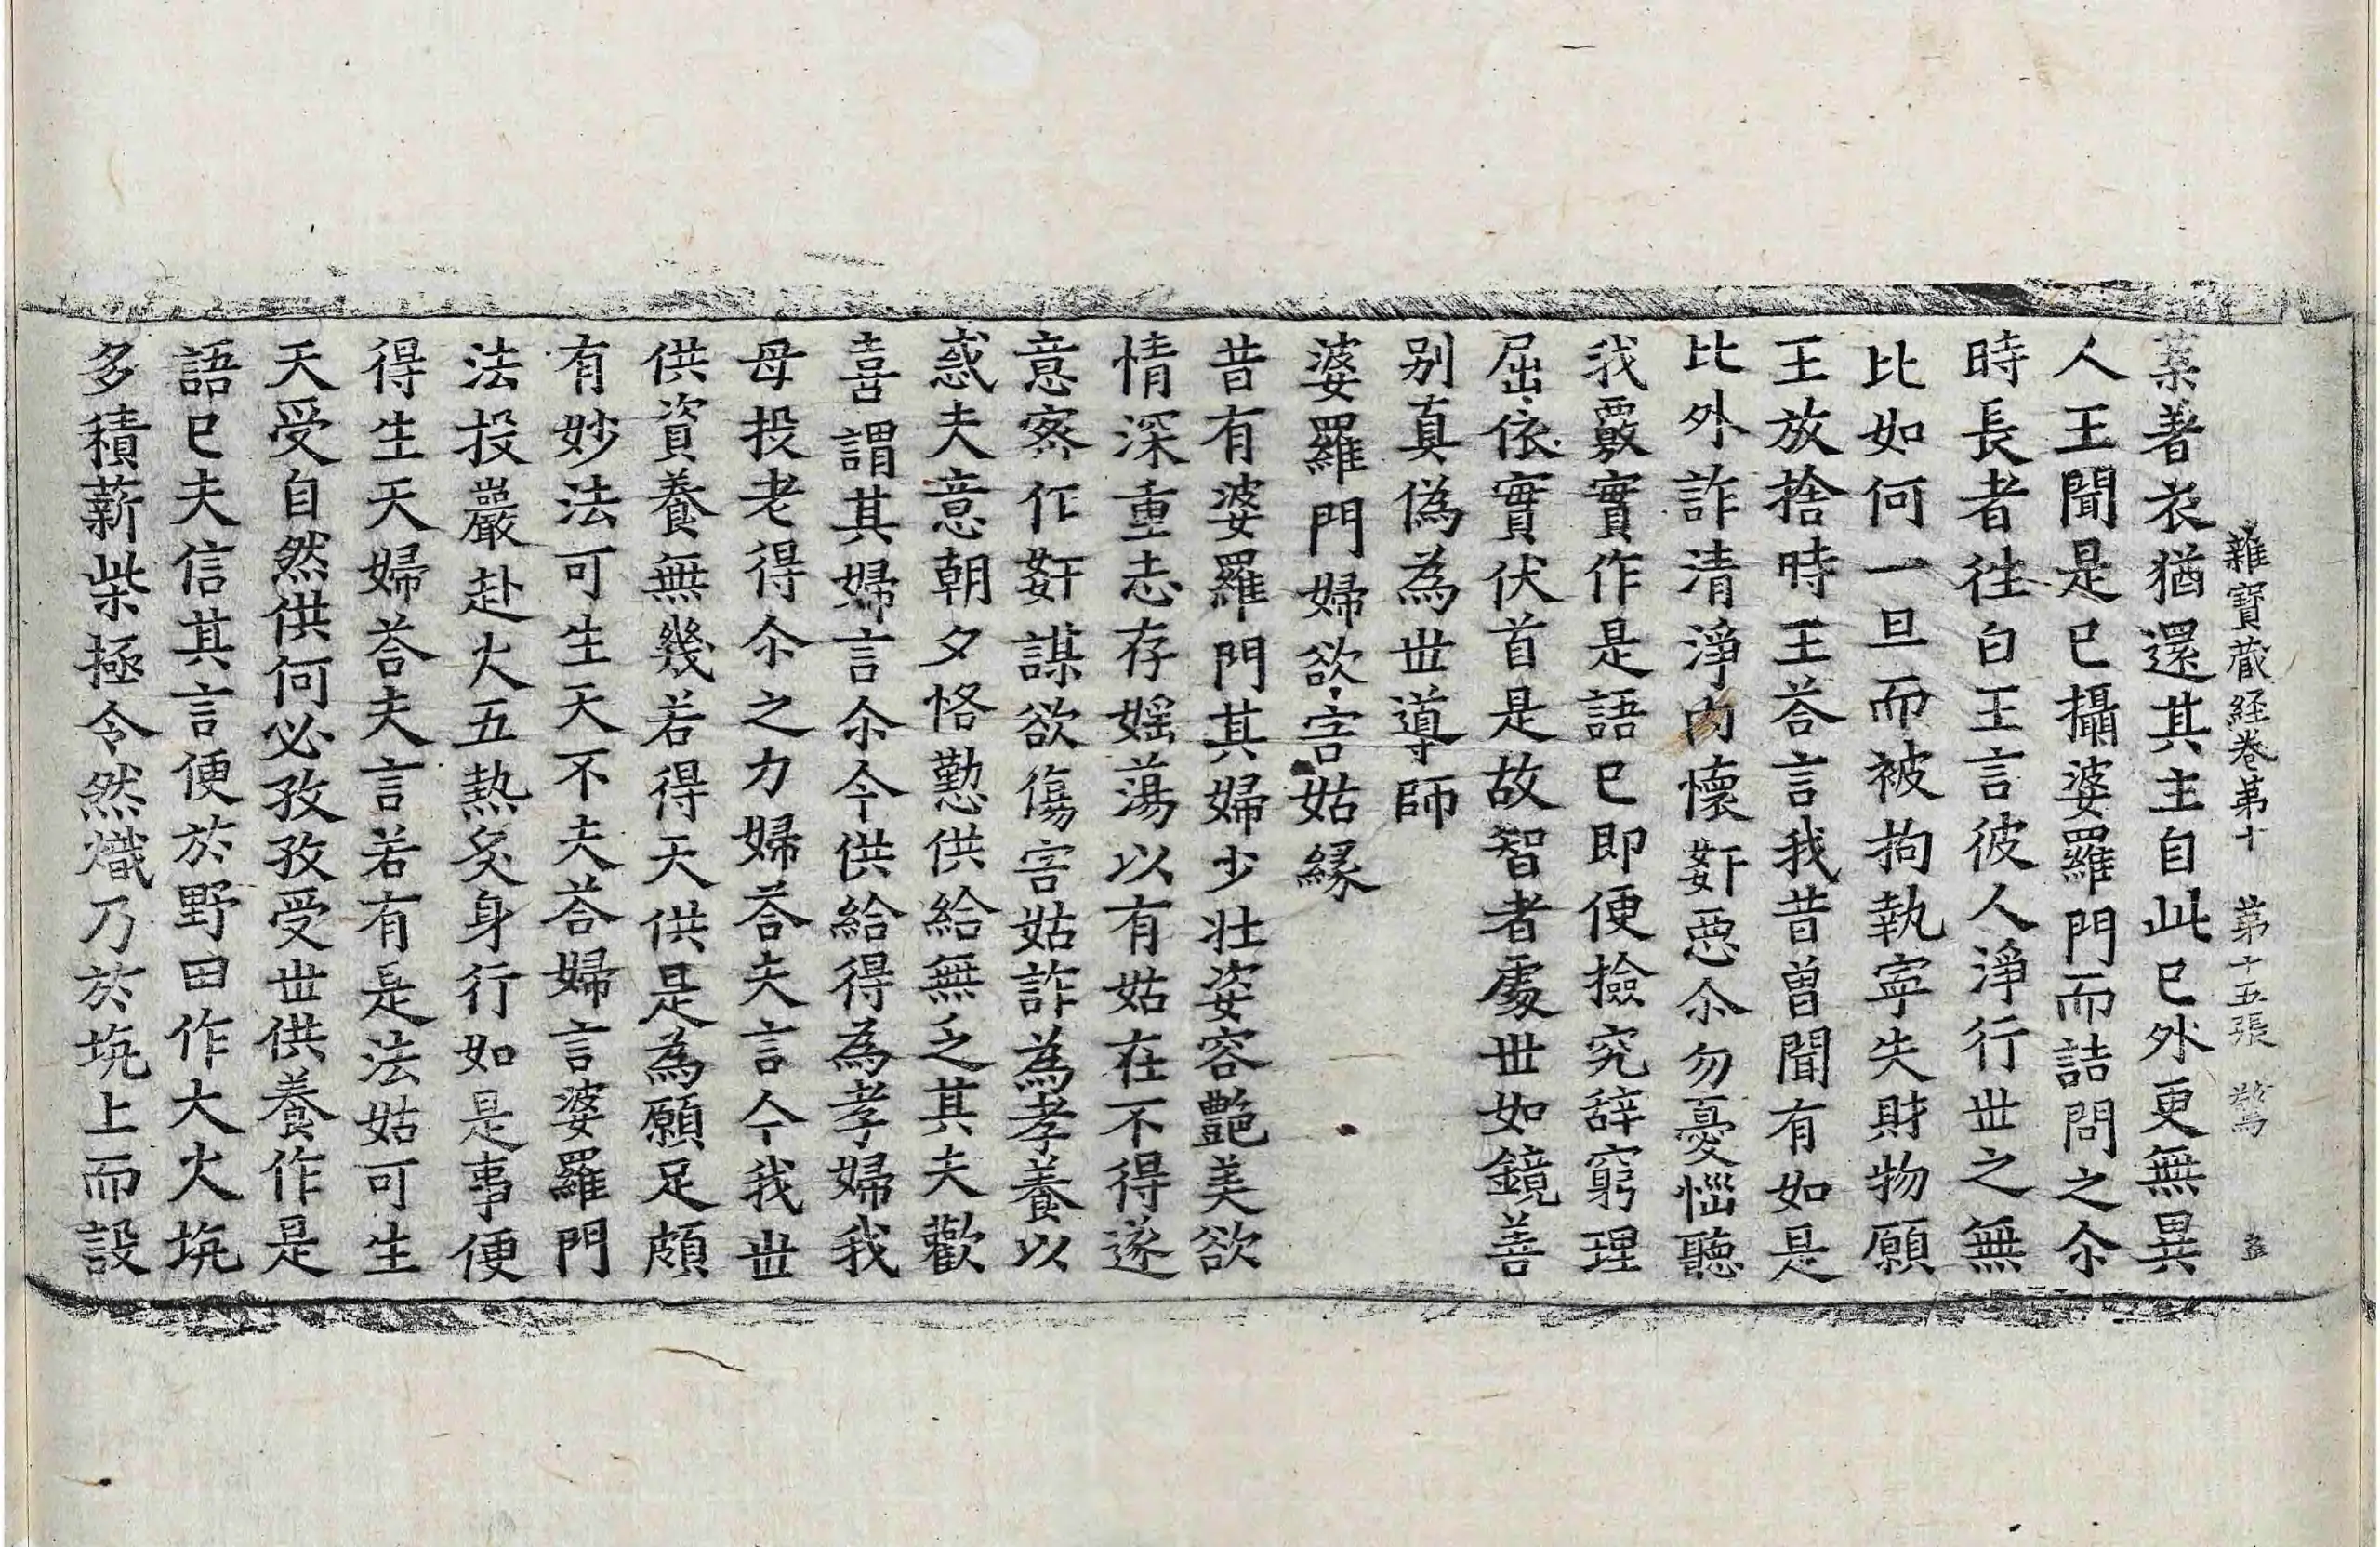 雜寶蔵経卷第十　第十五張　驚
葉著衣猶還其主自此已外更無異
人王聞是已攝婆羅門而詰問之尒
時長者往白王言彼人淨行世之無
比如何一旦而被拘執寧失財物願
王放捨時王荅言我昔曾聞有如是
比外詐清淨内懷姧惡尒勿憂惱聽
我覈實作是語已即便撿究辞窮理
屈依實伏首是故智者處世如鏡善
别真偽為世導師
婆羅門婦欲害姑緣
昔有婆羅門其婦少壯姿容艶美欲
情深重志存婬蕩以有姑在不得遂
意密作姧謀欲傷害姑詐為孝養以
惑夫意朝夕恪懃供給無乏其夫歡
喜謂其婦言尒今供給得為孝婦我
母投老得尒之力婦荅夫言今我世
供資養無幾若得天供是為願足頗
有妙法可生天不夫荅婦言婆羅門
法投巖赴火五熱炙身行如是事便
得生天婦荅夫言若有是法姑可生
天受自然供何必孜孜受世供養作是
語已夫信其言便於野田作大火坑
多積薪柴極令然熾乃於坑上而設